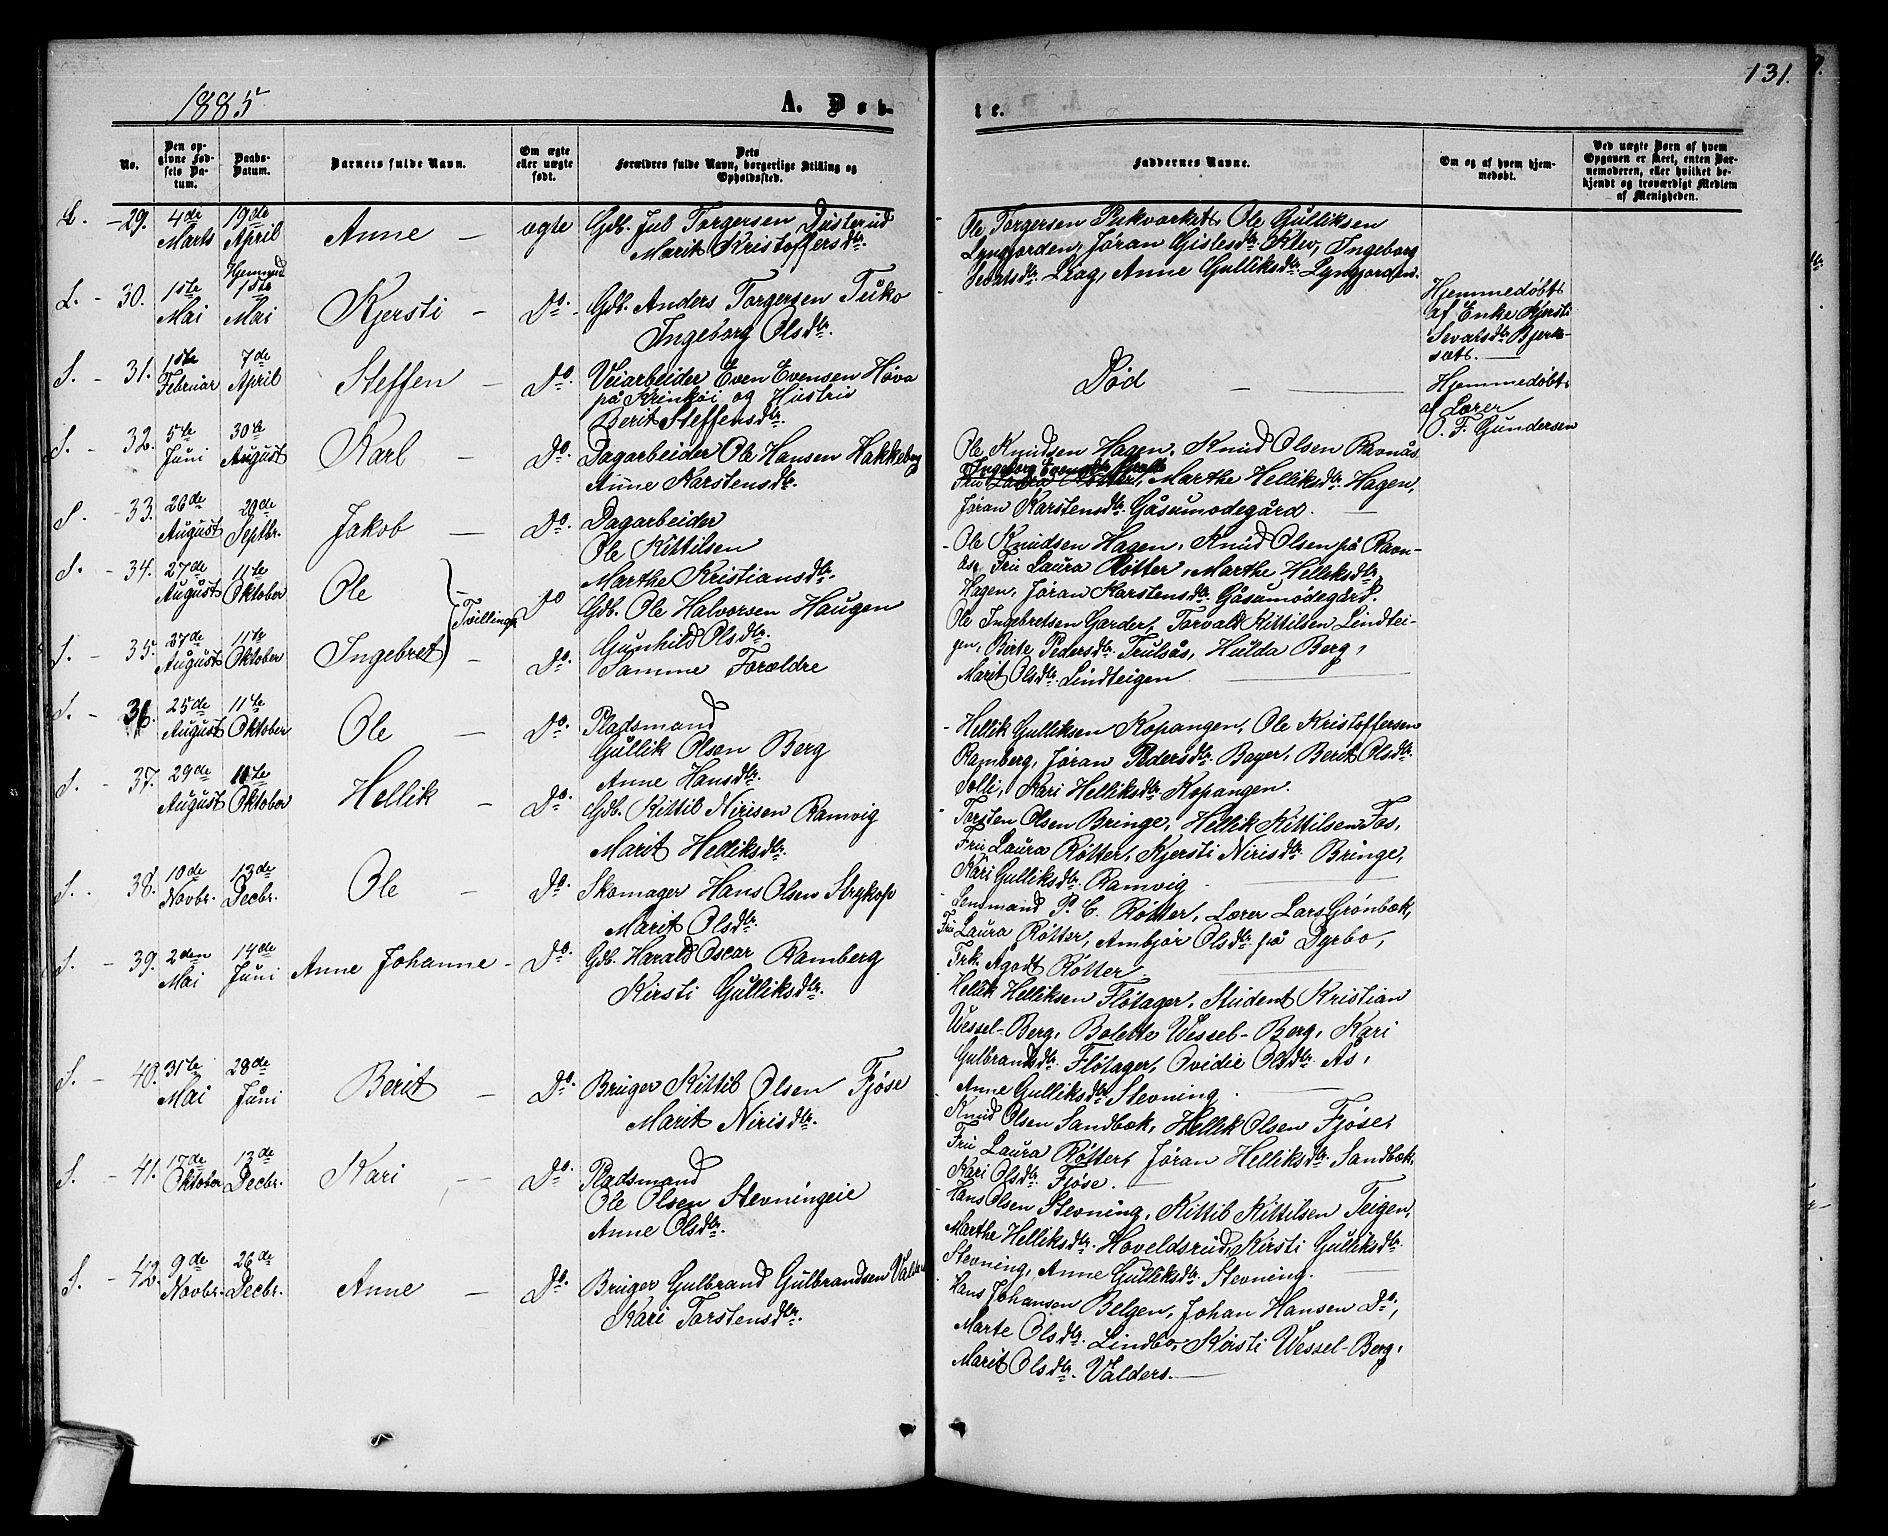 1885
A. Døb-
te.
131.
No.
Den opgivne Fødsels Datum.
Daabs-Datum.
Barnets fulde Navn.
Om ægte eller uægte født.
Dets Forældres fulde Navn, borgerlige Stilling og Opholdssted.
Faddernes Navne.
Om og af hvem hjemmedøbt.
Ved uægte Børn af hvem Opgaven er skeet, enten Barnemoderen, eller hvilket bekjendt og troværdigt Medlem af Menigheden.
L. - 29. 4de Marts 19de April Anne - ægte Gdb. Jul Torgersen Dusterud
Marit Kristoffersdtr.
Ole Torgersen Pukverket, Ole Gulliksen
Lyngjorden, Jøran Gislesdtr. Klev, Ingeborg
Sevatsdtr. Liag, Anne Gulliksdtr. Lyngjorden.
L. - 30. 1ste Mai Hjemmed 1ste Mai Kjersti - Do. Gdb. Anders Torgersen Tuko
Ingeborg Olsdtr.
Hjemmedøbt
af Enke Kjersti
Sevatsdtr. Bjerk-
sæt.
S. - 31. 1ste Februar 7de April Steffen - Do. Veiarbeider Even Evensen Høva
på Krinkøi og Hustru
Berit Steffensdtr.
Død
Hjemmedøbt
af Lærer
O. F. Gundersen
S. - 32. 5te Juni 30te August Karl - Do. Dagarbeider Ole Hansen Hakkeberg
Anne Karstensdtr.
Ole Knudsen Hagen, Knud Olsen Ravnås
Fru Laura Røtter, Marthe Helliksdtr. Hagen,
Jøran Karstensdtr. Gåsumodegård.
S. - 33. 26de August 29de Septbr. Jakob - Do. Dagarbeider
Ole Kittilsen
Marthe Kristiansdtr.
Ole Knudsen Hagen, Knud Olsen på Ravn-
ås, Fru Laura Røtter, Marthe Helliksdtr.
Hagen, Jøran Karstensdtr. Gåsumodegård.
S. - 34. 27de August 11te Oktober Ole - Tvillinger Do Gdb. Ole Halvorsen Haugen
Gunhild Olsdtr.
Ole Ingebretsen Garder, Torvald Kittilsen Lindtei-
gen, Birte Pedersdtr. Trulsås, Hulda Berg,
Marit Olsdtr. Lindteigen
S. - 35. 27de August 11te Oktober Ingebret - Do. Samme Forældre
S. - 36. 25de August 11te Oktober Ole - Do. Pladsmand
Gullik Olsen Berg
Anne Hansdtr.
Hellik Gulliksen Kopangen, Ole Kristoffersen
Ramberg, Jøran Pedersdtr. Bager, Berit Olsdtr.
Solli, Kari Helliksdtr. Kopangen.
S. - 37. 29de August 11te Oktober Hellik - Do. Gdb. Kittil Nirisen Ramvig
Marit Helliksdtr.
Torsten Olsen Bringe, Hellik Kittilsen Fos,
Fru Laura Røtter, Kjersti Nirisdtr. Bringe,
Kari Gulliksdtr. Ramvig
S. - 38. 10de Novbr. 13de Decbr. Ole - Do. Skomager Hans Olsen Strykop
Marit Olsdtr.
Lensmand P. C. Røtter, Lærer Lars Grønbæk,
Fru Laura Røtter, Ambjør Olsdtr. på Dyrbo,
Frk. Agodt Røtter
S. - 39. 2den Mai 14de Juni Anne Johanne - Do. Gdb. Harald Oscar Ramberg
Kirsti Gulliksdtr.
Hellik Helliksen Fløtager, Student Kristian
Wessel-Berg, Bolette Wessel-Berg, Kari
Gulbrandsdtr. Fløtager, Ovidie Olsdtr. Ås,
Anne Gulliksdtr. Stevning
S. - 40. 31te Mai 28de Juni Berit - Do. Bruger Kittil Olsen Fjøse
Marit Nirisdtr.
Knud Olsen Sandbæk, Hellik Olsen Fjøse,
Fru Laura Røtter, Jøran Helliksdtr. Sandbæk,
Kari Olsdtr. Fjøse.
S. - 41. 17de Oktober 13de Decbr. Kari - Do. Pladsmand
Ole Olsen Stevningeie
Anne Olsdtr.
Hans Olsen Stevning, Kittil Kittilsen Teigen,
Marthe Helliksdtr. Hoveldsrud, Kirsti Gulliksdtr.
Stevning, Anne Gulliksdtr. Stevning.
S. - 42. 9de Novbr. 26de Decbr. Anne - Do. Bruger Gulbrand Gulbrandsen Valders
Kari Torstensdtr.
Hans Johansen Belgen, Johan Hansen Do,
Marte Olsdtr. Lindbo, Kirsti Wessel-Berg,
Marit Olsdtr. Valders.